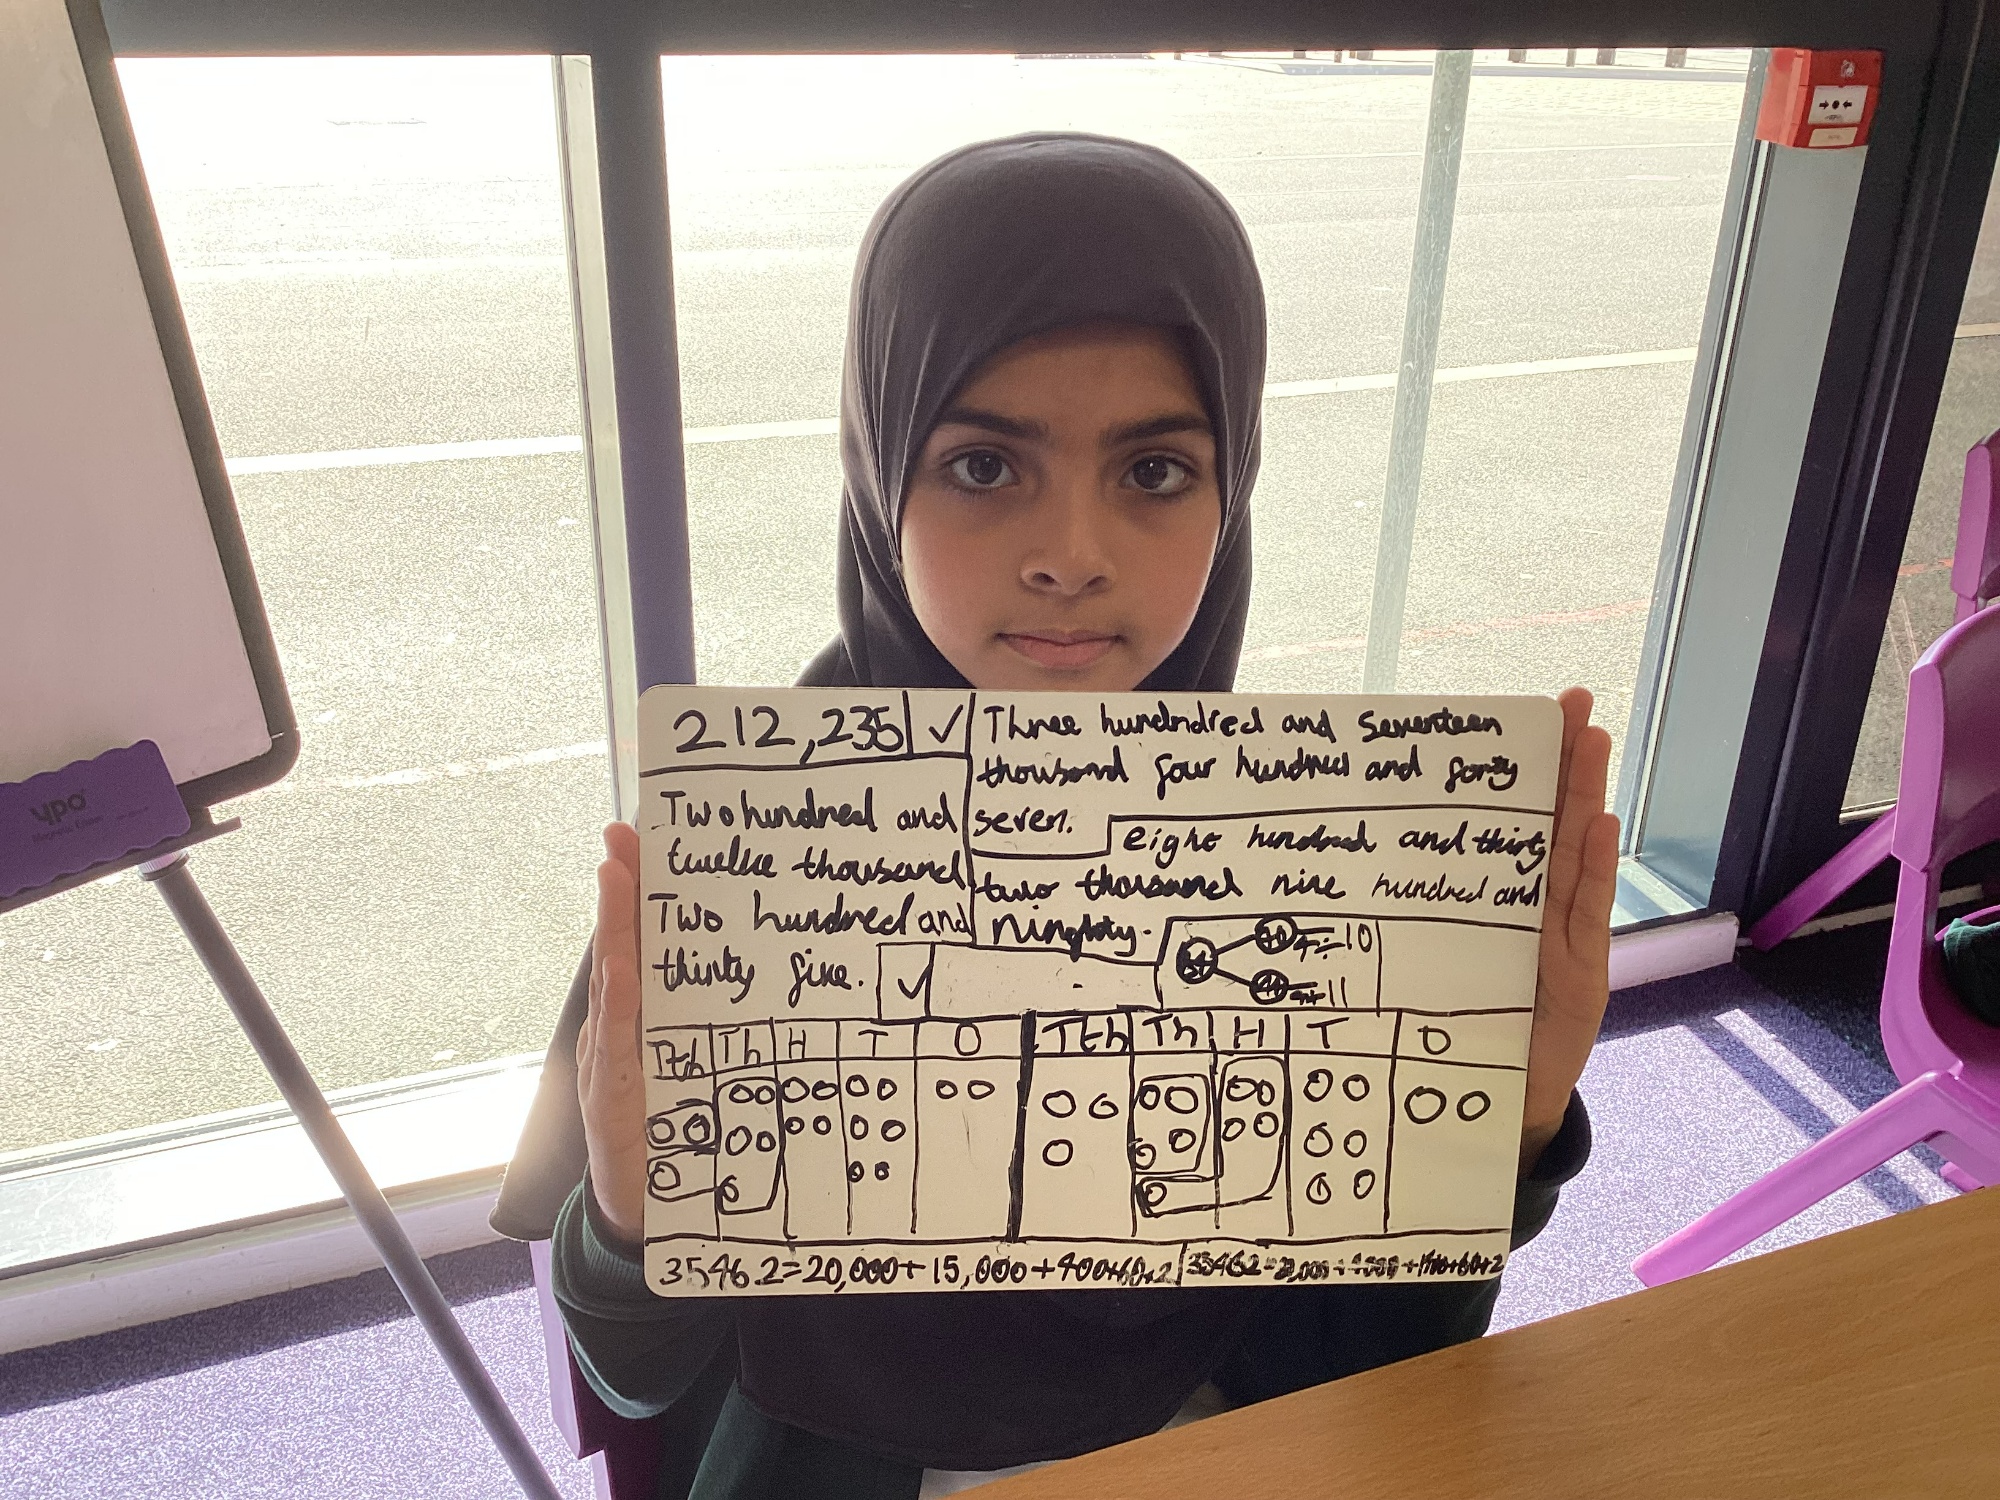 212,235 ✓
Two hundred and
twelve thousand
Two hundred and
thirty five. ✓
Three hundndred and Seventeen
thousand four hundred and forty
seven.
eight hundred and thirty
two thousand nine hundred and
10
11
Tth Th H T O
Tth Th H T O
35462=20,000+15,000+400+60+2
35462=
ypo
Magnetic Eraser